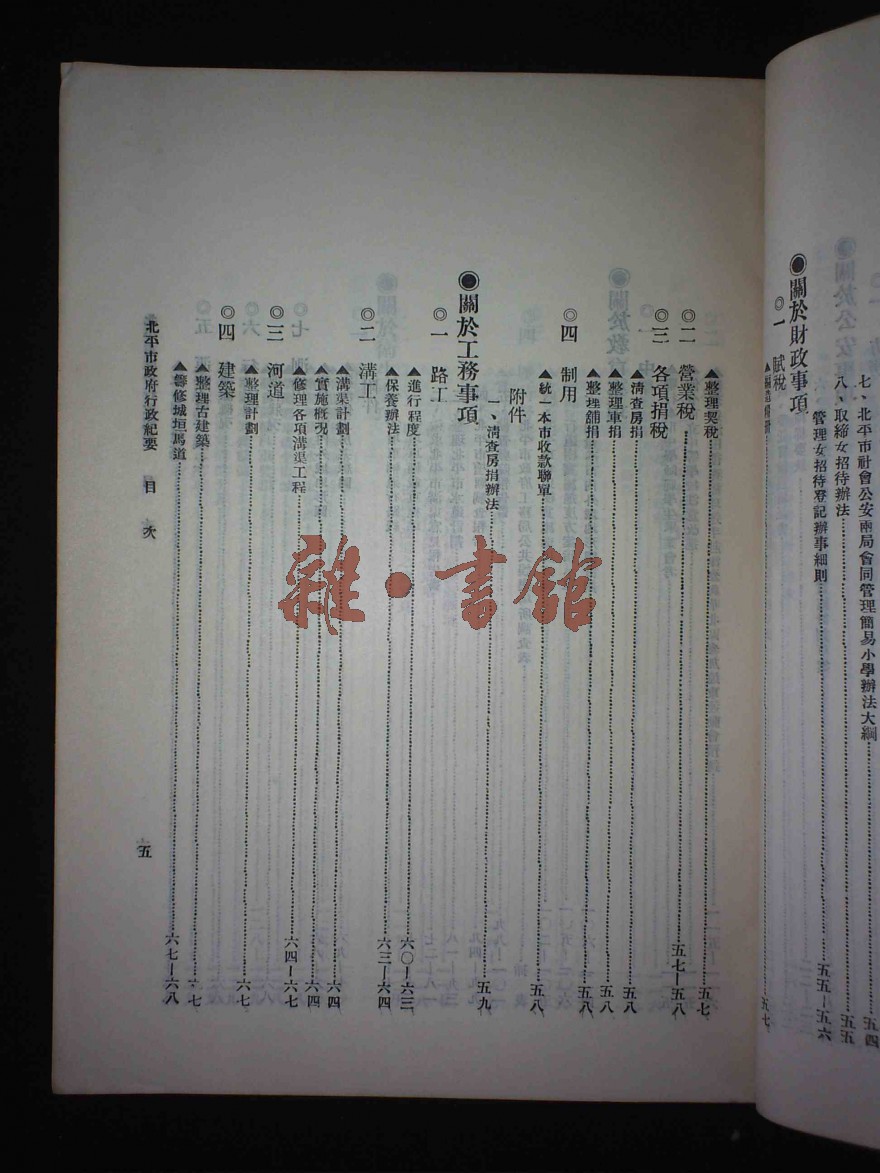 七、北平市社會公安兩局會同管理簡易小學辦法大綱……五四
八、取締女招待辦法……五五
管理女招待登記辦事細則……五五—五六
◉關於財政事項
◎一 賦稅
▲整理契稅……五七
◎二 營業稅……五七—五八
◎三 各項捐稅
▲清查房捐……五八
▲整理車捐……五八
▲整理舖捐……五八
◎四 制用
▲統一本市收款聯單……五八
附件
一、清查房捐辦法……五九
◉關於工務事項
◎一 路工
▲進行程度……六〇—六三
▲保養辦法……六三—六四
◎二 溝工
▲溝渠計劃……六四
▲實施概況……六四
▲修理各項溝渠工程……六四—六七
◎三 河道
▲整理計劃……六七
◎四 建築
▲整理古建築……六七
▲籌修城垣馬道……六七—六八
北平市政府行政紀要 目次
五
雜·書館